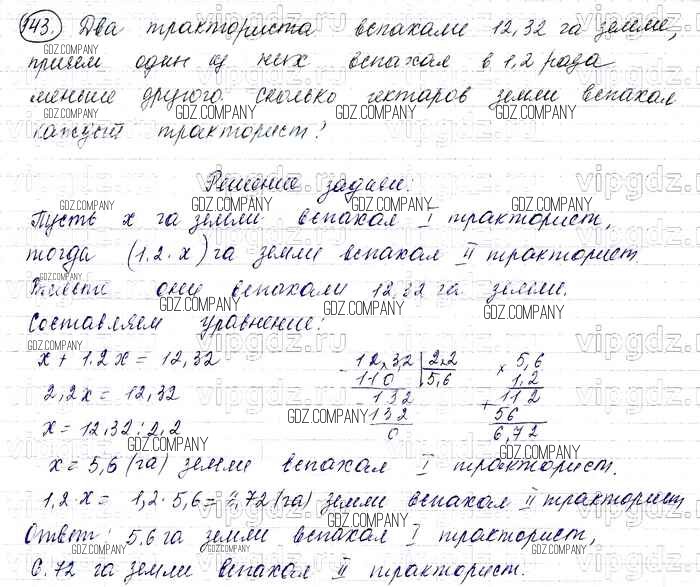 143. Два тракториста вспахали 12,32 га земли,
причем один из них вспахал в 1,2 раза
меньше другого. Сколько гектаров земли вспахал
каждый тракторист?
Решение задачи:
Пусть x га земли вспахал I тракторист,
тогда (1.2·x) га земли вспахал II тракторист.
Вместе они вспахали 12,32 га земли.
Составляем уравнение:
x + 1.2x = 12,32
2,2x = 12,32
x = 12,32 : 2,2
12,32 | 2,2
- 110 | 5,6
- 132
132
0
× 5,6
1,2
+ 112
56
6,72
x = 5,6 (га) земли вспахал I тракторист.
1,2·x = 1,2·5,6 = 6,72 (га) земли вспахал II тракторист
Ответ: 5.6 га земли вспахал I тракторист,
6.72 га земли вспахал II тракторист.
GDZ.COMPANY
vipgdz.ru